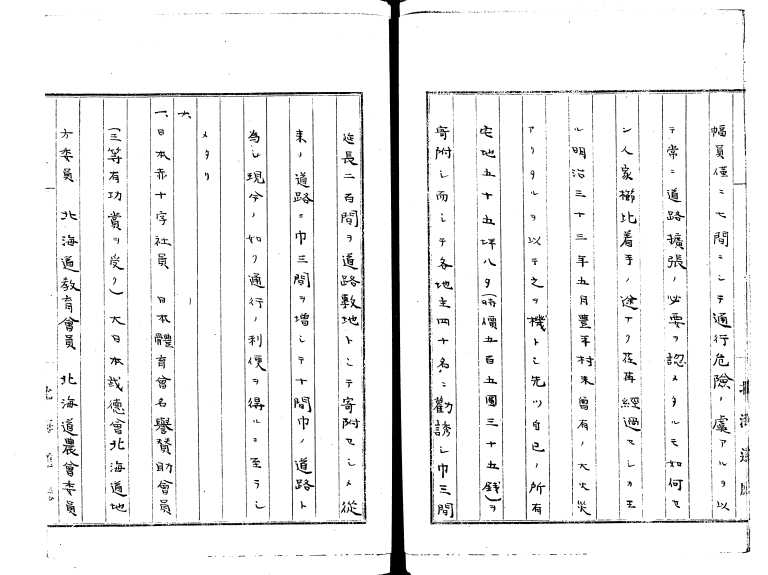 幅員僅ニ七間ニシテ通行危險ノ虞アルヲ以
テ常ニ道路擴張ノ必要ヲ認メタルモ如何セ
ン人家櫛比着手ノ途ナク荏苒經過セシカ
ル明治三十三年五月豊平村未曾有ノ大火災
アリタルヲ以テ之ヲ機トシ先ツ自己ノ所有
宅地五十五坪八夕(時價五百五圓三十五錢)ヲ
寄附シ而シテ各地主四十名ニ勸誘シ巾三間
延長二百間ヲ道路敷地トシテ寄附セシメ從
来ノ道路ニ巾三間ヲ増シテ十間巾ノ道路ト
為シ現今ノ如ク通行ノ利便ヲ得ルニ至ラシ
メタリ
六
一、日本赤十字社員 日本體育會名譽賛助會員
(三等有功賞ヲ受ク) 大日本武德會北海道地
方委員 北海道教育會員 北海道農會委員